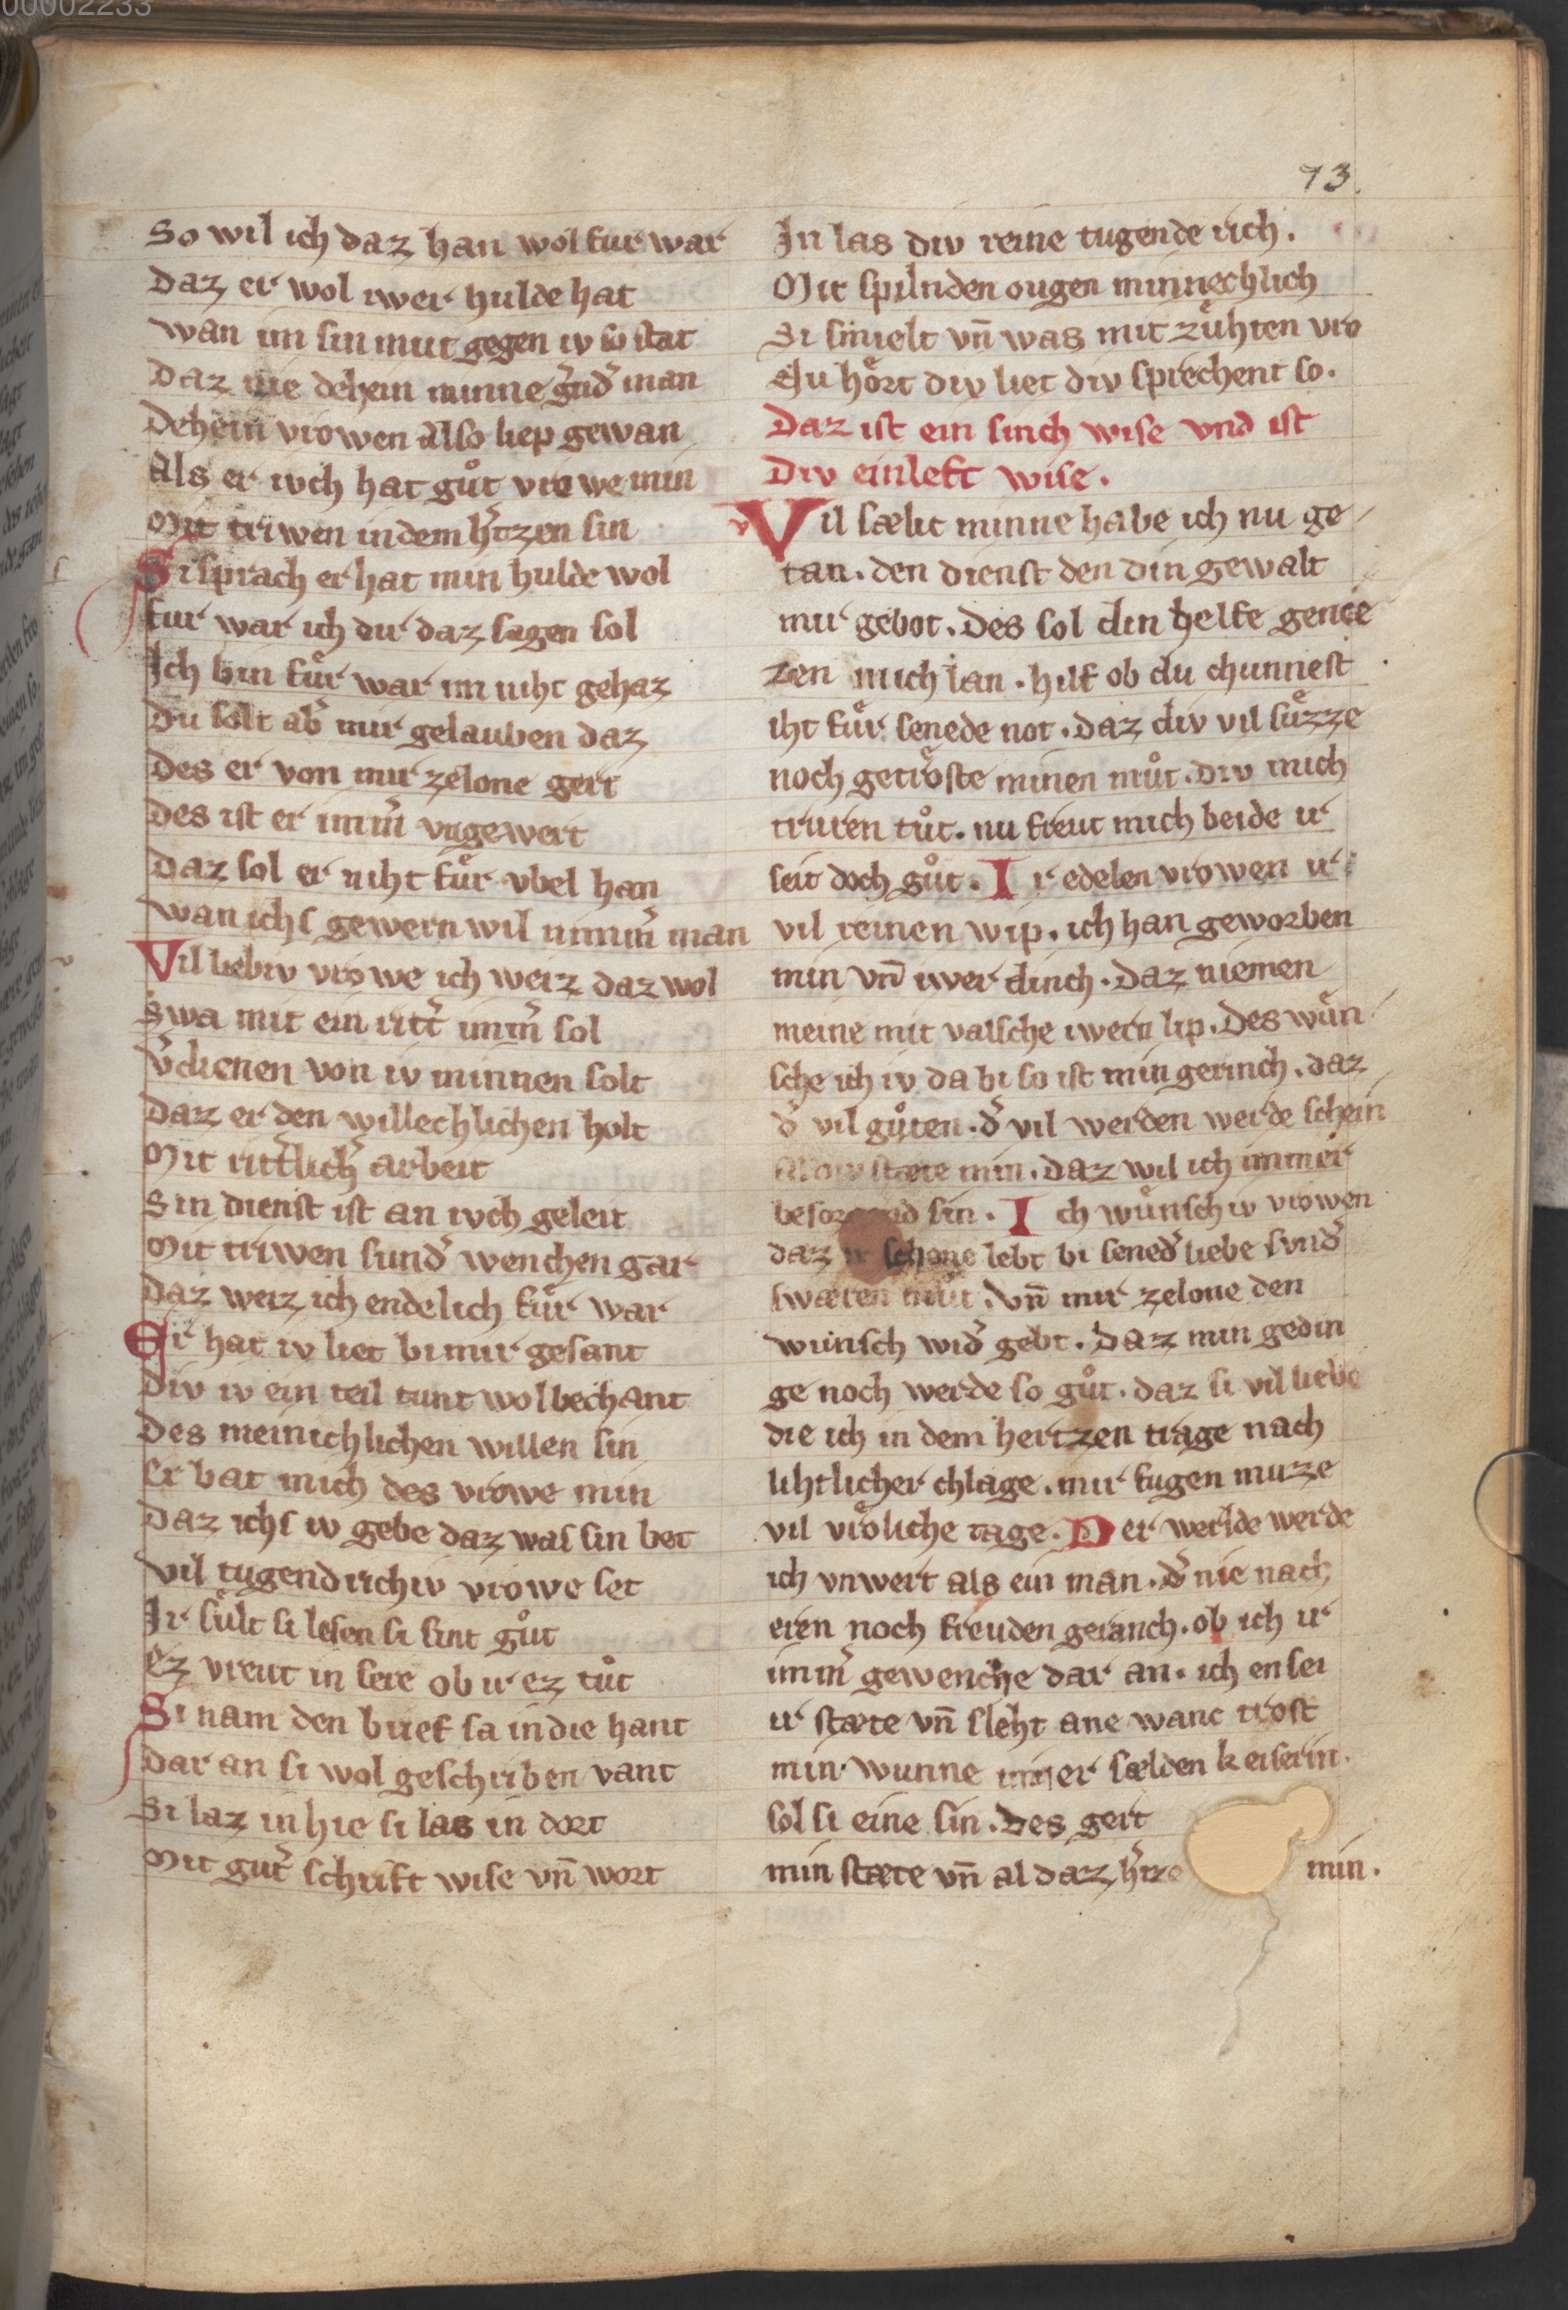 00002233
73.
So wil ich daz han wol fur war
Daz er wol iwer hulde hat
wan im sin mut gegen iv so stat
Daz nie dehein minne gnd̄ man
Dehein vrowen also liep gewan
Als er ivch hat gůt vrowe min
Mit triwen in dem h̄tzen sin
Si sprach er hat min hulde wol
fur war ich dir daz sagen sol
Ich bin fuͤr war im niht gehaz
Du solt ab̄ mir gelauben daz
Des er von mir zelone gert
Des ist er imm̄ vngewert
Daz sol er niht fuͤr vbel han
wan ichs gewern wil nimm̄ man
Vil liebiv vrowe ich weiz daz wol
Swa mit ein ritt̄ imm̄ sol
v̄dienen von iv minnen solt
Daz er den willechlichen holt
Mit ritt̄lich̄ arbeit
Sin dienst ist an ivch geleit
Mit triwen sund̄ wenchen gar
Daz weiz ich endelich fuͤr war
Er hat iv liet bi mir gesant
Div iv ein teil tunt wol bechant
Des meinichlichen willen sin
Er bat mich des vrowe min
Daz ichs iv gebe daz was sin bet
vil tugendrichiv vrowe set
Ir suͤlt si lesen si sint gůt
ez vreut in sere ob ir ez tůt
Si nam den brief sa in die hant
Dar an si wol geschriben vant
Si laz in hie si las in dort
Mit gut̄ schrift wise vn̄ wort
In las div reine tugende rich.
Mit spilnden ougen minnechlich
Si smielt vn̄ was mit zuͤhten vro
Nu hoͤrt div liet div sprechent so.
Daz ist ein sinch wise vnd ist
Div einleft wise.
Vil sælic minne habe ich nu ge
tan. den dienst den din gewalt
mir gebot. Des sol din helfe genie
zen mich lan. hilf ob du chunnest
iht fuͤr senede not. daz div vil suͤzze
noch getroͤste minen můt. div mich
truren tůt. nu freut mich beide ir
seit doch gůt. Ir edelen vrowen ir
vil reinen wip. ich han geworben
min vn̄ iwer dinch. Daz niemen
meine mit valsche iwern lip. Des wuͤn
sche ich iv da bi so ist min gerinch. daz
d̄ vil gůten. d̄ vil werden werde schein
stæte min. daz wil ich immer
sin. Ich wuͤnsch iv vrowen
daz ir schone lebt bi sened̄ liebe sund̄
swæren můt. vn̄ mir zelone den
wunsch wid̄ gebt. Daz min gedin
ge noch werde so gůt. daz si vil liebe
die ich in dem hertzen trage nach
lihtlicher chlage. mir fugen muze
vil vroͤliche tage. Der werlde werde
ich vnwert als ein man. d̄ nie nach
eren noch freuden geranch. ob ich ir
imm̄ gewenche dar an. ich en sei
ir stæte vn̄ sleht ane wanc trost
min wunne miner sælden keiserin.
sol si eine sin. Des gert
min stæte vn̄ al daz h̄tze min.